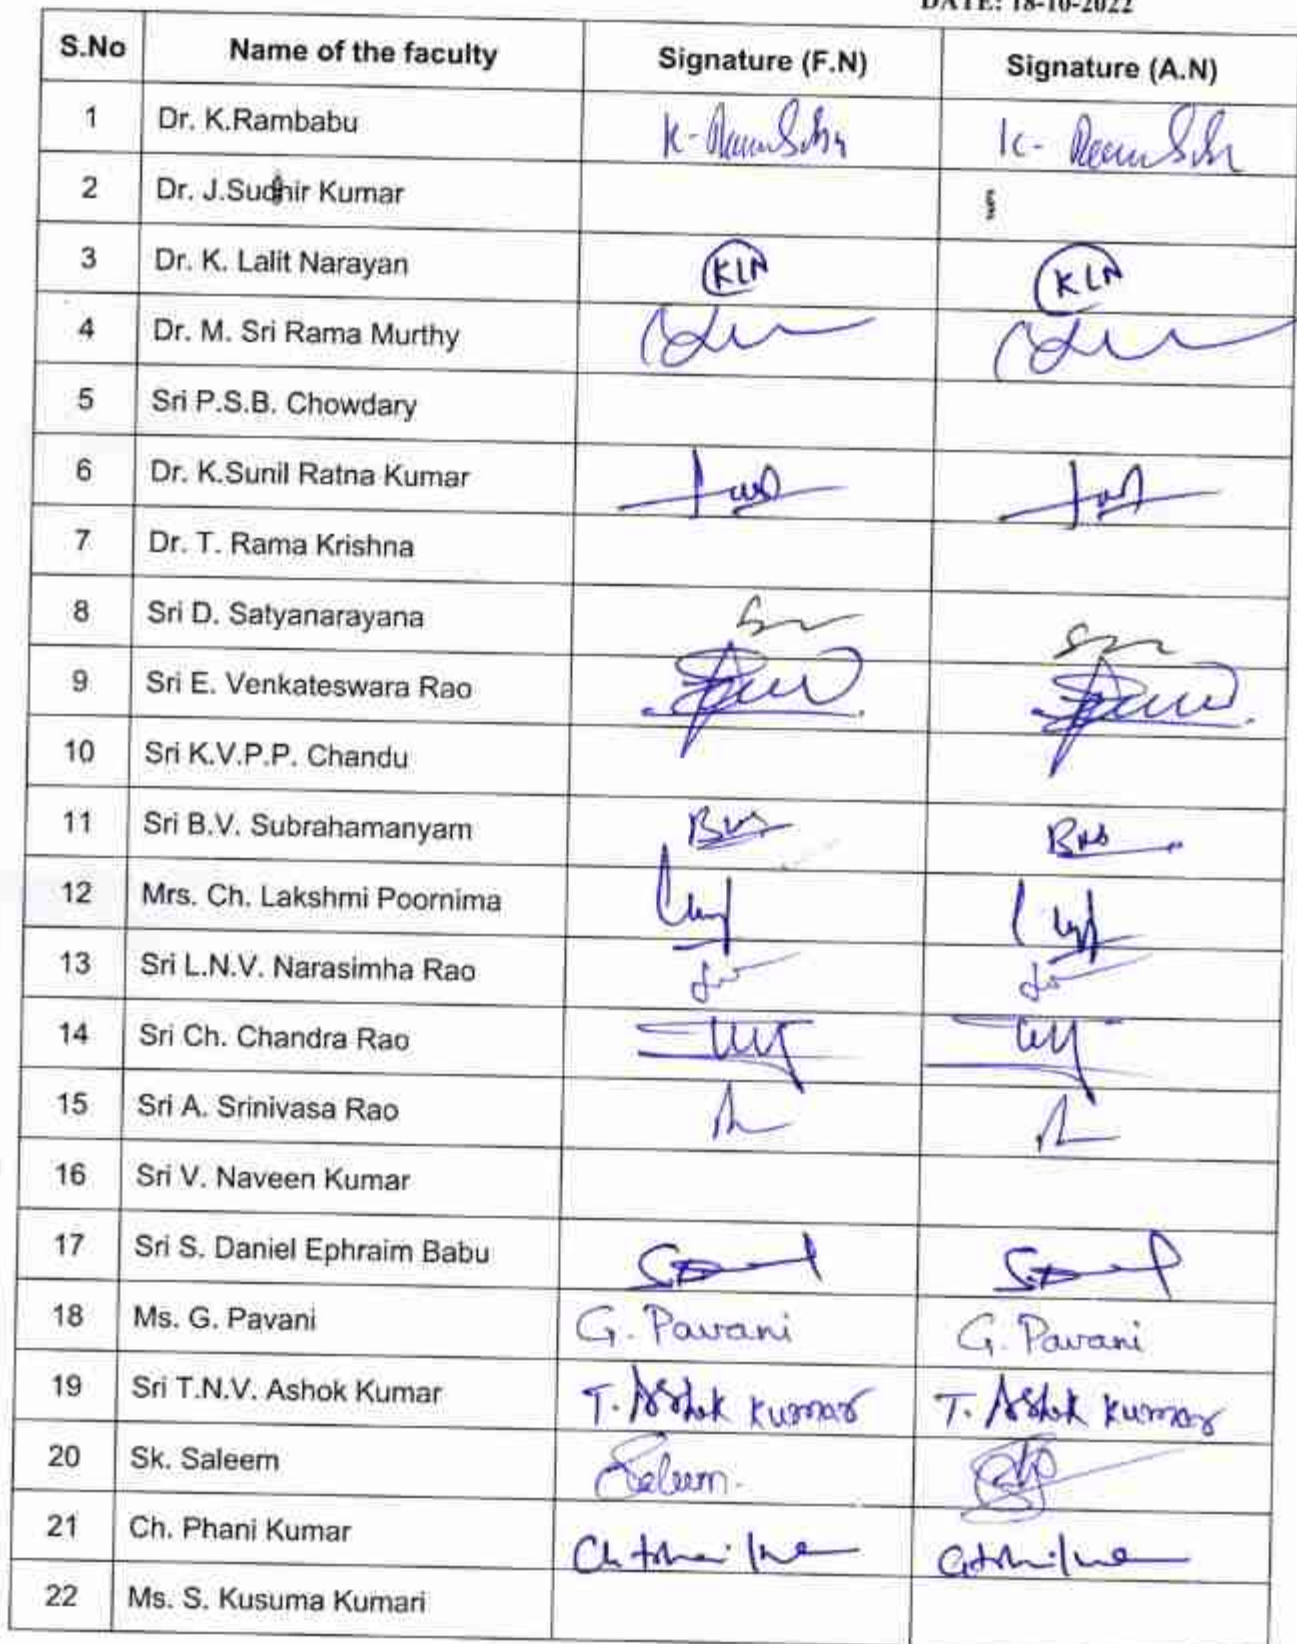 DATE: 18-10-2022
S.No Name of the faculty Signature (F.N) Signature (A.N)
1 Dr. K.Rambabu K- K-
2 Dr. J.Sudhir Kumar
3 Dr. K. Lalit Narayan KLN KLN
4 Dr. M. Sri Rama Murthy
5 Sri P.S.B. Chowdary
6 Dr. K.Sunil Ratna Kumar
7 Dr. T. Rama Krishna
8 Sri D. Satyanarayana
9 Sri E. Venkateswara Rao
10 Sri K.V.P.P. Chandu
11 Sri B.V. Subrahamanyam BVS BVS
12 Mrs. Ch. Lakshmi Poornima
13 Sri L.N.V. Narasimha Rao
14 Sri Ch. Chandra Rao
15 Sri A. Srinivasa Rao
16 Sri V. Naveen Kumar
17 Sri S. Daniel Ephraim Babu
18 Ms. G. Pavani G. Pavani G. Pavani
19 Sri T.N.V. Ashok Kumar T. Ashok Kumar T. Ashok Kumar
20 Sk. Saleem Saleem
21 Ch. Phani Kumar
22 Ms. S. Kusuma Kumari